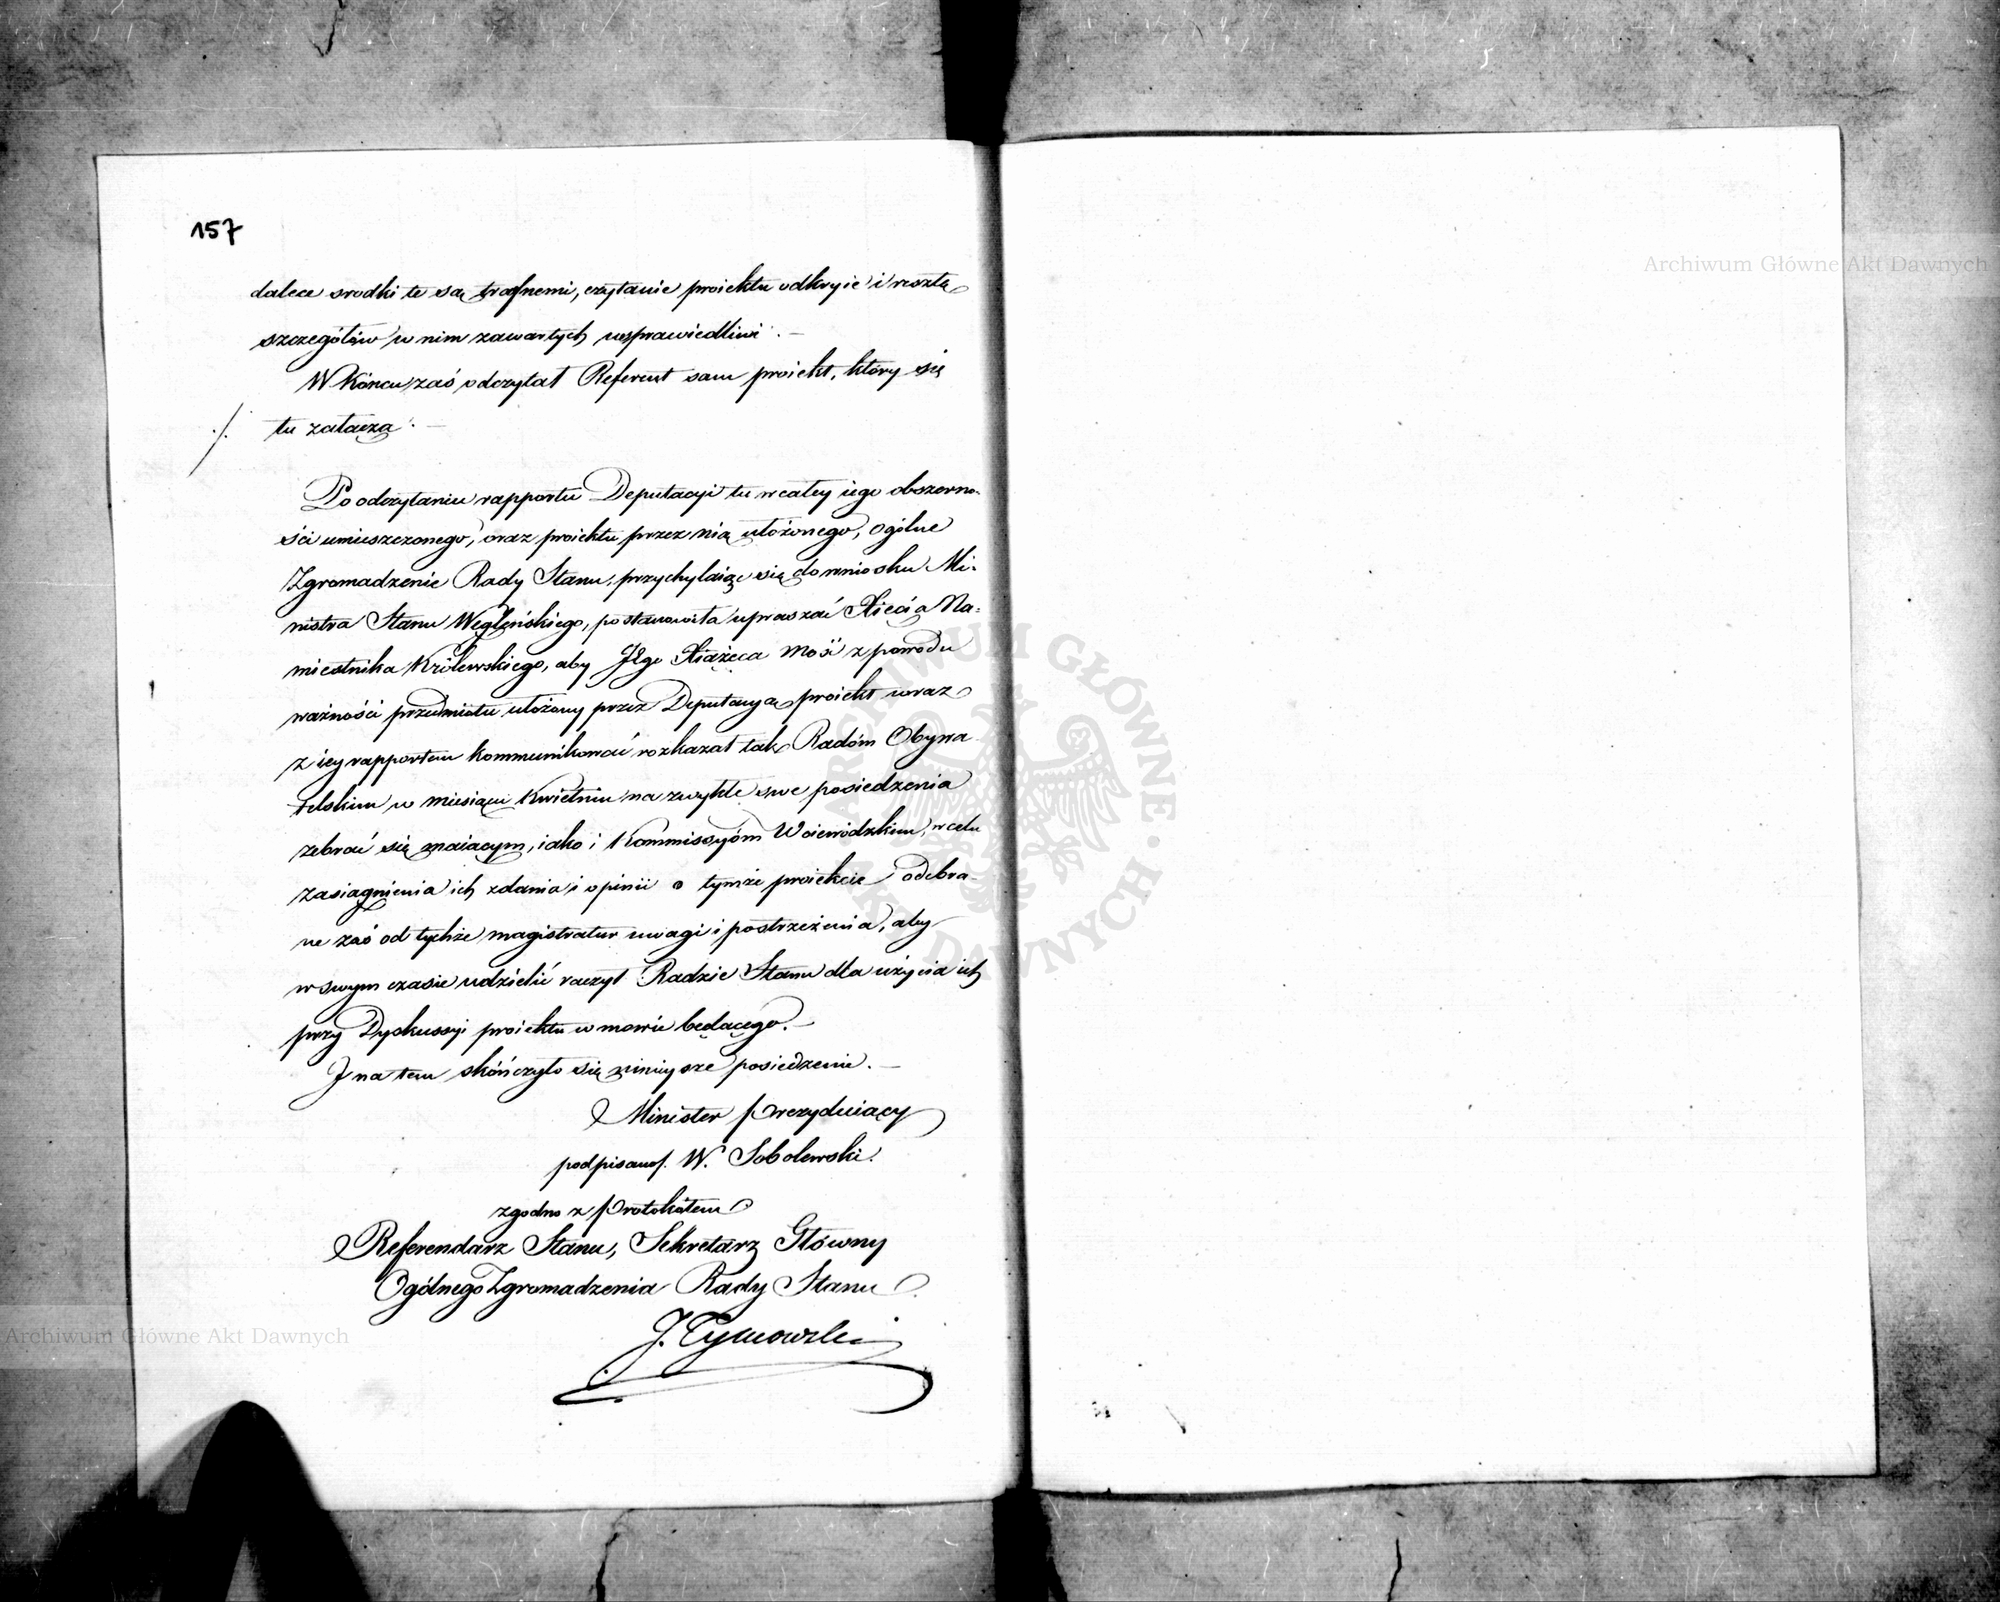 157
dalece srodki te są trafnemi, czytanie proiektu odkryie i resztę
szczegółów w nim zawartych usprawiedliwi. —
W końcu zaś odczytał Referent sam proiekt, który się
./. tu załącza. —
Po odczytaniu rapportu Deputacyi tu w całey iego obszerno-
ści umieszczonego, oraz proiektu przez nią ułożonego, ogólne
Zgromadzenie Rady Stanu, przychylaiąc się do wniosku Mi-
nistra Stanu Węgleńskiego, postanowiła upraszać Xięcia Na-
miestnika Królewskiego, aby JEgo Xiążęca Mość z powodu
ważności przedmiotu ułożony przez Deputacyą proiekt wraz
z iey rapportem kommunikować rozkazał tak Radóm Obywa-
telskim w miesiącu Kwietniu na zwykłe swe posiedzenia
zebrać się maiącym, iako i Kommissyóm Woiewódzkim, w celu
zasiągnienia ich zdania i opinii o tymże proiekcie odebra-
ne zaś od tychże magistratur uwagi i postrzeżenia, aby
w swym czasie udzielić raczył Radzie Stanu dla użycia ich
przy Dyskussyi proiektu w mowie będącego. —
J na tem skończyło się ninieysze posiedzenie. —
Minister Prezyduiący
podpisano/. W. Sobolewski.
zgodno z Protokółem
Referendarz Stanu, Sekretarz Główny
Ogólnego Zgromadzenia Rady Stanu
J. Tymowski
Archiwum Główne Akt Dawnych
Archiwum Główne Akt Dawnych
ARCHIWUM GŁÓWNE AKT DAWNYCH